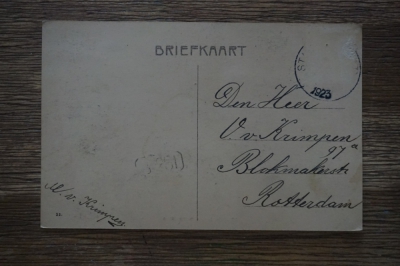 BRIEFKAART
1923
Den Heer
V. v. Krimpen
97a
Blokmakerstr.
Rotterdam
M. v. Krimpen